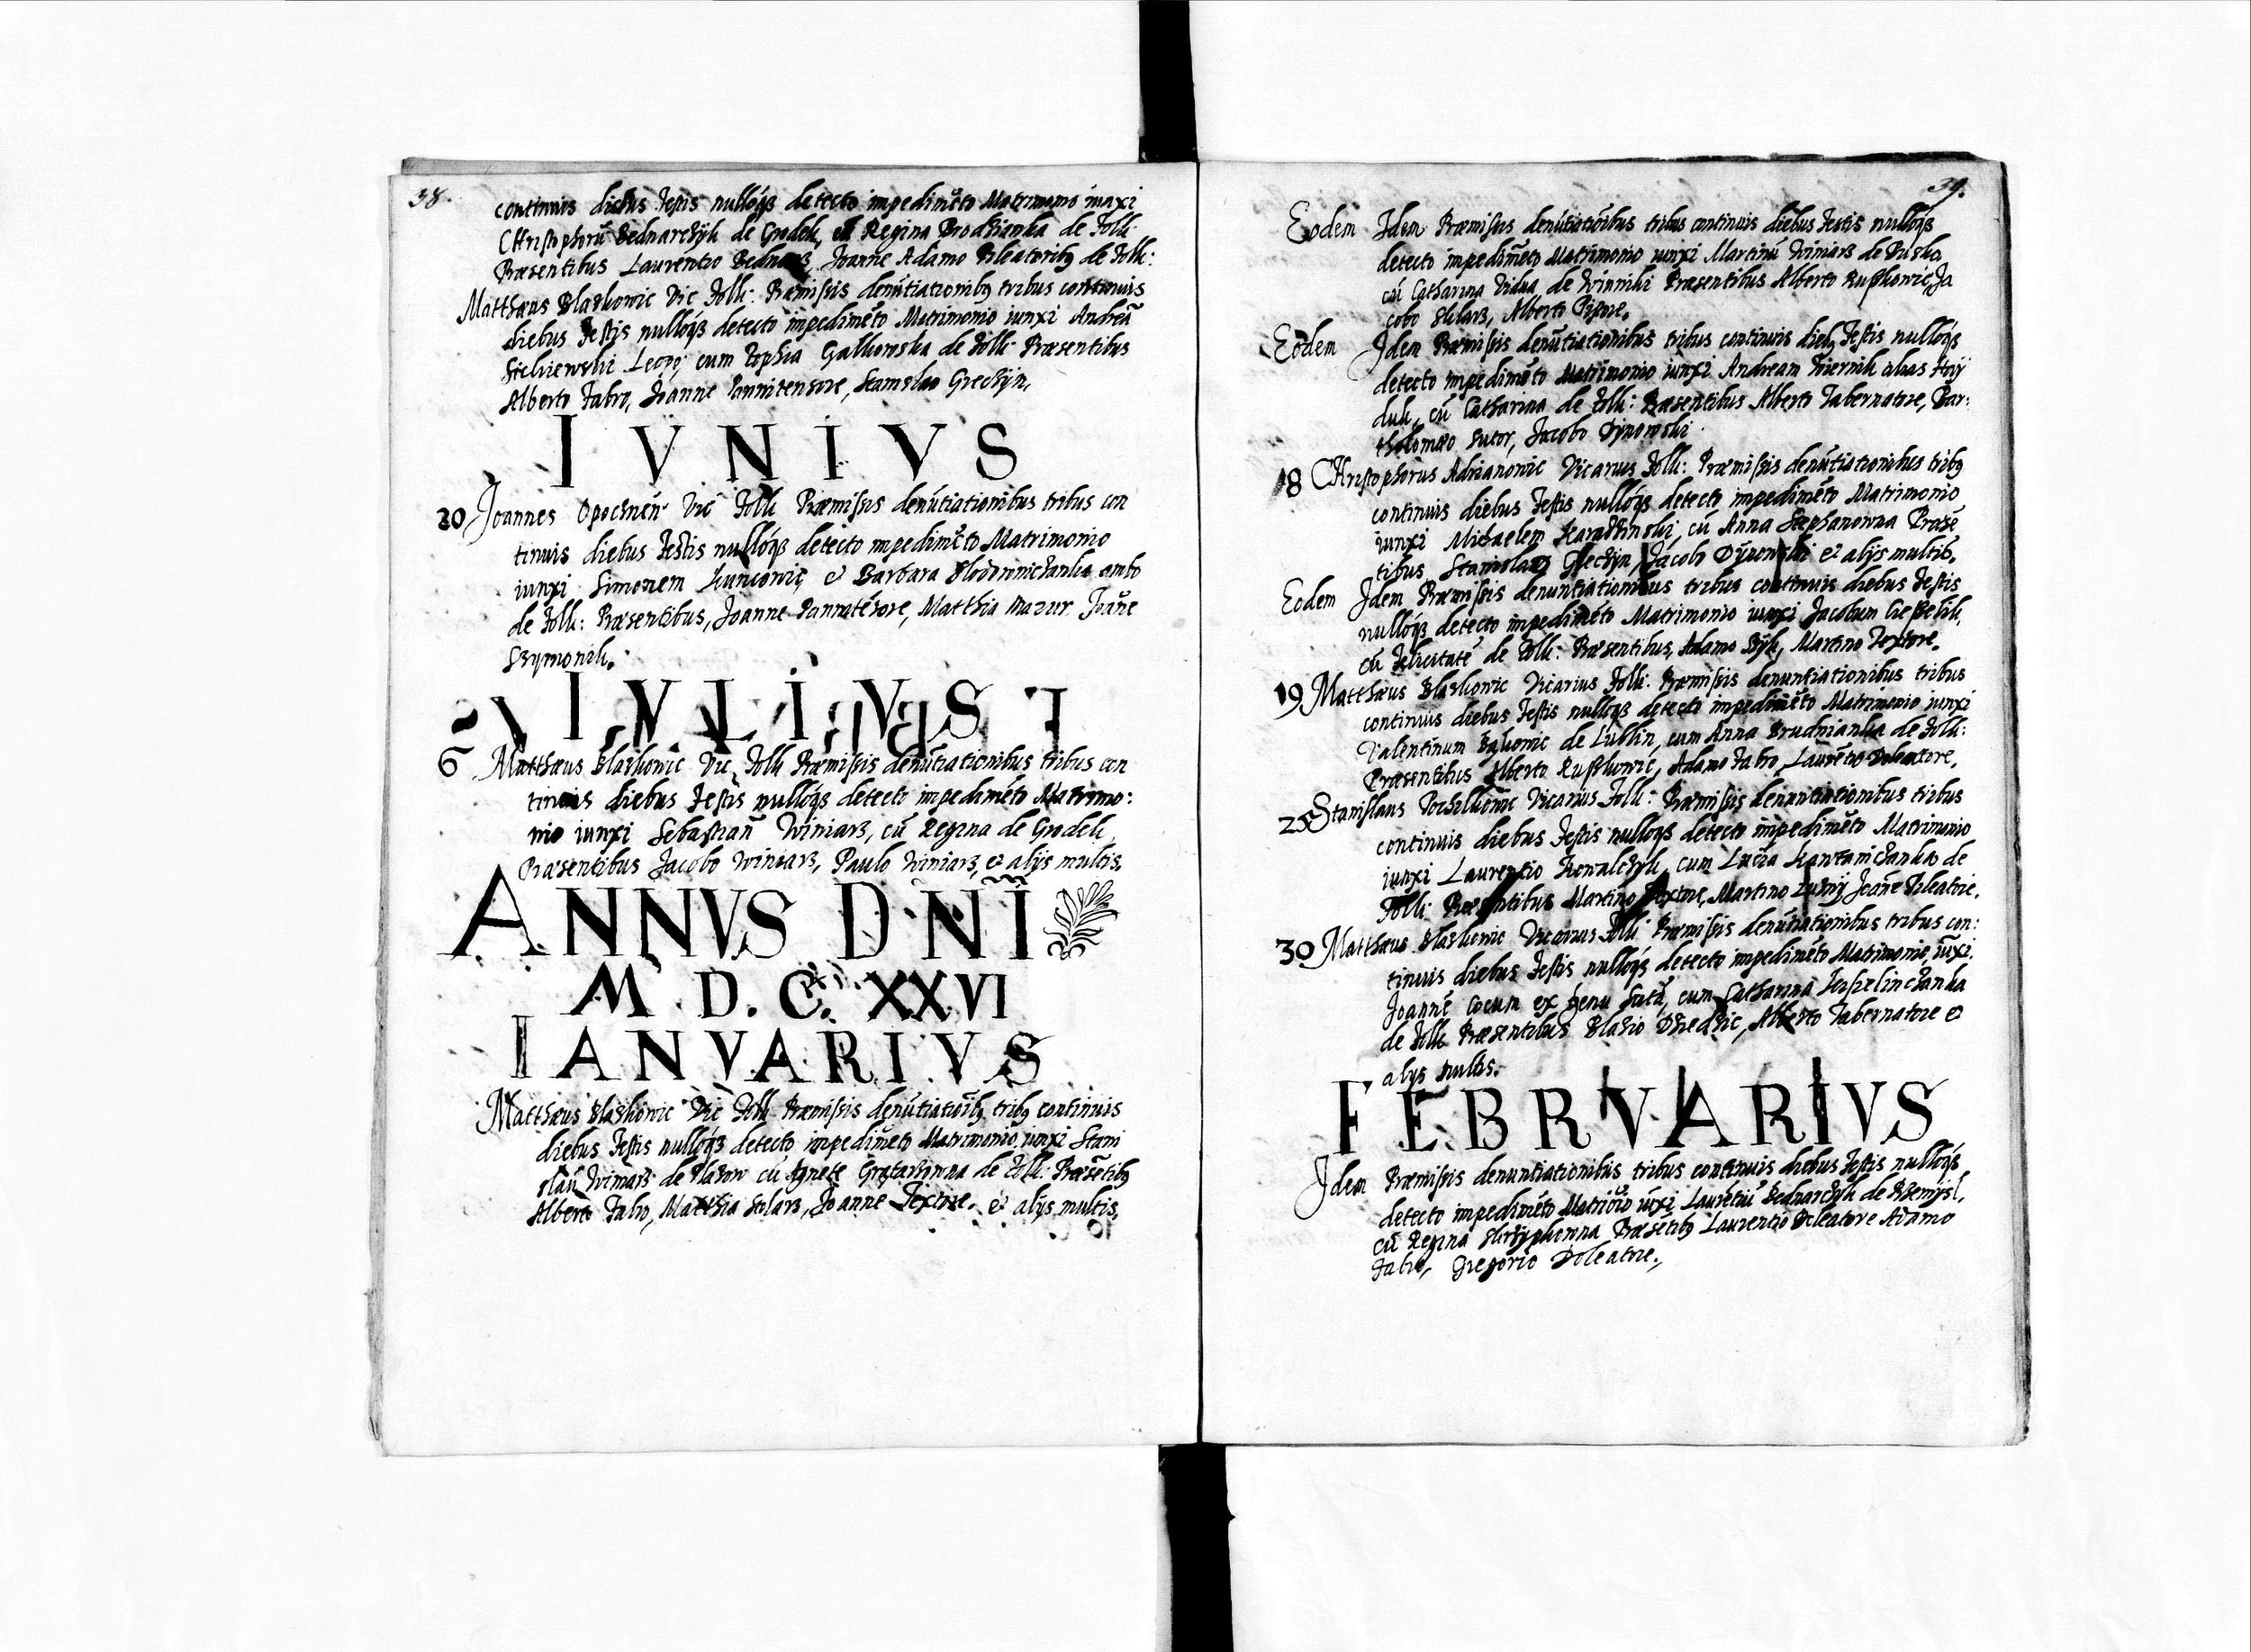 38.
continuis diebus Festis nullóqȝ detecto impedimēto Matrimonio iunxi
Christophorū Bednarczyk de Grodek, et Regina Brodzianka de Zolk:
Præsentibus Laurentio Bednarz, Joanne Adamo Doleatoribȝ de Zolk:
Matthæus Blaskowic Vic Zolk: Præmissis denūtiationibȝ tribus continuis
diebus Festis nullóqȝ detecto impedimēto Matrimonio iunxi Andreā
Leop; cum Zophia Galkowska de Zolk: Præsentibus
Alberto Fabro, Joanne Pannitensore, Stanislao Greczyn,
IVNIVS
20 Joannes Opocznen Vic Zolk Præmissis denūtiationibus tribus con
tinuis diebus Festis nullóqȝ detecto impedimēto Matrimonio
iunxi Simonem Kuncowic, et Barbara ambo
de Zolk: Præsentibus, Joanne Pannitēsore, Matthia Mazur Joāne
Szymonik.
IVLIVS
6 Matthæus Blaskowic Vic, Zolk Præmissis denūtiationibus tribus con
tinuis diebus Festis nullóqȝ detecto impedimēto Matrimo:
nio iunxi Sebastianū Winiarz, cū Regina de Grodek,
Præsentibus Jacobo Winiarz, Paulo Winiarz, et alijs multis.
ANNVS DNĪ
M. D. C. XXVI
IANVARIVS
Matthæus Blaskowic Vic Zolk Præmissis denūtiatiōibȝ tribȝ continuis
diebus Festis nullóqȝ detecto impedimēto Matrimonio iunxi Stani
slaū Winiarz de cū Agnete de Zolk: Præsētibȝ
Alberto Fabro, Matthia Stolarz, Joanne Textore. et alijs multis.
39.
Eodem Idem Præmissis denūtiatiōibus tribus continuis diebus Festis nullóqȝ
detecto impedimēto Matrimonio iunxi Martinū Winiarz de Busko,
cū Catharina Vidua de Winniki Præsentibus Alberto Ruszkowic, Ja
cobo Stolarz, Alberto Pistore.
Eodem Idem Præmissis denūtiationibus tribus continuis diebȝ Festis nullóqȝ
detecto impedimēto Matrimonio iunxi Andream alias
duk, cū Catharina de Zolk: Præsentibus Alberto Tabernatore, Bar:
tholomæo Sutor, Jacobo Dynowski
18 Christophorus Adrianowic Vicarius Zolk: Præmissis denūtiationibus tribȝ
continuis diebus Festis nullóqȝ detecto impedimēto Matrimonio
iunxi Michaelem cū Anna Stephanowna Præsē
tibus Stanislao Greczyn, Jacobo Dynowski et alijs multis.
Eodem Idem Præmissis denuntiationibus tribus continuis diebus Festis
nullóqȝ detecto impedimēto Matrimonio iunxi Jacobum
cū Felicitate de Zolk: Præsentibus, Adamo Martino Textore.
19 Matthæus Blaskowic Vicarius Zolk: Præmissis denuntiationibus tribus
continuis diebus Festis nullóqȝ detecto impedimēto Matrimonio iunxi
Valentinum de Lublin, cum Anna Brudnianka de Zolk:
Præsentibus Alberto Ruszkowic, Adamo Fabro, Laurētio Doleatore.
25 Stanislaus Vicarius Zolk: Præmissis denuntiationibus tribus
continuis diebus Festis nullóqȝ detecto impedimēto Matrimonio
iunxi Laurentio Kowalczyk, cum Lucia de
Zolk: Præsentibus Martino Textore, Martino Joāne Doleatore.
30 Matthæus Blaskowic Vicarius Zolk: Præmissis denūtiationibus tribus con:
tinuis diebus Festis nullóqȝ detecto impedimēto Matrimonio iūxi.
Joannē Cocum ex cum Catharina
de Zolk Præsentibus Blasio Alberto Tabernatore et
alijs multis.
FEBRVARIVS
Idem Præmissis denuntiationibus tribus continuis diebus Festis nullóqȝ
detecto impedimēto iūxi Laurētiū Bednarczyk de Przemysl,
cū Regina Præsētibȝ Laurentio Doleatore Adamo
Fabro, Gregorio Doleatore.